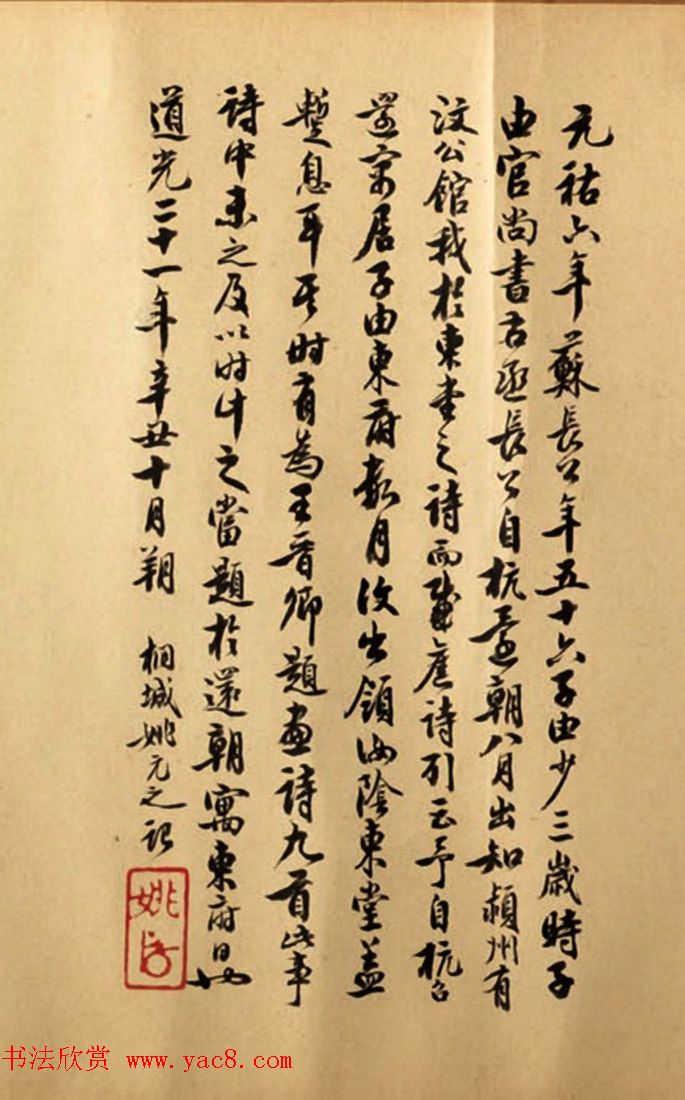 元祐六年蘇長公年五十六子由少三歲時子
由官尚書右丞長公自杭還朝八月出知潁州有
汶公館我於東堂之詩而舊詩引云予自杭召
還寓居子由東府數月復出領汝陰東堂蓋
暫息耳其時有為王晉卿題畫詩九首此事
詩中未之及以時計之當題於還朝寓東府日也
道光二十一年辛丑十月朔 桐城姚元之記
书法欣赏 www.yac8.com